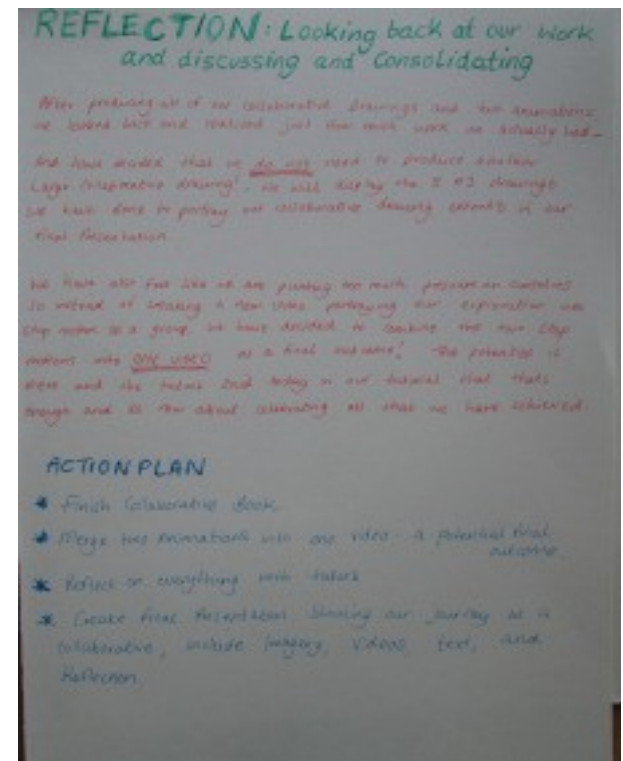 REFLECTION: Looking back at our work
and discussing and Consolidating
After producing all of our collaborative drawings and two animations
we looked back and realized just how much work we actually had
And have decided that we do not need to produce another
Large Collaborative drawing'. We will display the 5 A3 drawings
we have done to portray our collaborative drawing in our
Final Presentation.
We have also felt like we are putting too much pressure on ourselves
So instead of creating a new video portraying our exploration into
Stop motion as a group, we have decided to combine the two Stop
motions into ONE VIDEO as a final outcome! The potential is
there and the tutors said today in our tutorial that thats
enough and its now about celebrating all that we have achieved.
ACTION PLAN
* Finish Collaborative Book
* Merge two Animations into one video - a potential final
outcome
* Reflect on everything with tutors
* Create Final Presentation Showing our journey as a
Collaborative, include Imagery, Videos, text, and
Reflection.